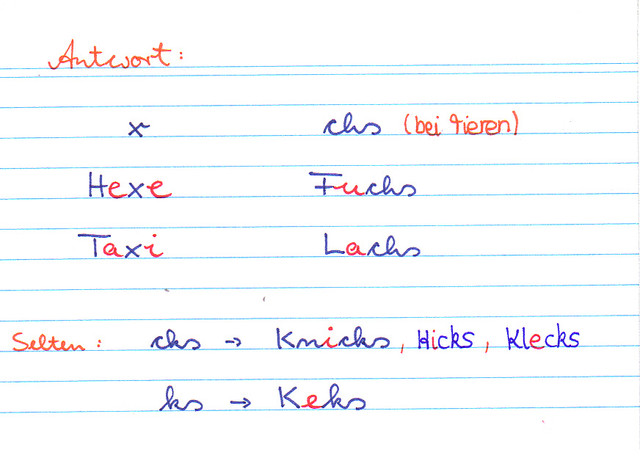 Antwort:
x chs (bei tieren)
Hexe Fuchs
Taxi Lachs
Selten: cks → Knicks, Hicks, Klecks
ks → Keks